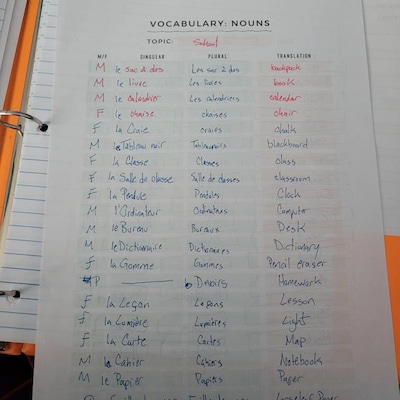 VOCABULARY: NOUNS
TOPIC: School
M/F SINGULAR PLURAL TRANSLATION
M le sac à dos Les sac à dos backpack
M le livre Les livres book
M le calendrier Les calendriers calendar
F le chaise chaises chair
F la Craie craies chalk
M le Tableau noir Tableaunoirs blackboard
F la Classe Classes class
F la Salle de classe Salle de classes classroom
F la Pendule Pendules Clock
M l'Ordinateur Ordinateurs Computer
M le Bureau Bureaux Desk
M le Dictionnaire Dictionnaires Dictionary
F la Gomme Gommes Pencil eraser
P Devoirs Homework
F la Leçon Leçons Lesson
F la Lumière Lumières Light
F la Carte Cartes Map
M le Cahier Cahiers Notebook
M le Papier Papiers Paper